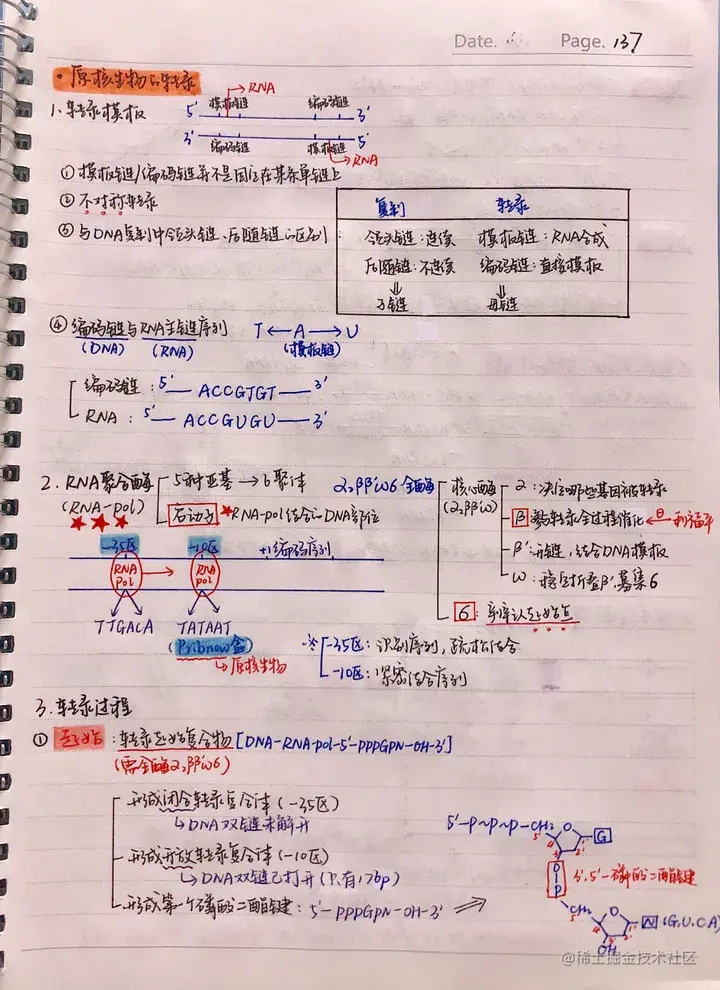 Date. Page. 137
·原核生物的转录
1.转录模板
5' 模板链 RNA 编码链 3'
3' 编码链 模板链 5'
RNA
①模板链/编码链并不是固定在某条单链上
②不对称转录
③与DNA复制中领头链、后随链的区别
复制 转录
领头链:连续 模板链:RNA合成
后随链:不连续 编码链:直接模板
⇓ ⇓
子链 母链
④编码链与RNA主链序列 T←A→U
(DNA) (RNA) (模板链)
编码链:5'—ACCGTGT—3'
RNA:5'—ACCGUGU—3'
2.RNA聚合酶 5种亚基→6聚体 α2ββ'ωσ全酶
(RNA-pol) 启动子★RNA-pol结合的DNA部位
★★★
核心酶 α:决定哪些基因被转录
(α2ββ'ω) β:转录全过程催化←⊖利福平
β':开链,结合DNA模板
ω:稳定折叠β',募集σ
σ:辨认起始点
-35区 -10区 +1编码序列
RNA pol → RNA pol
TTGACA TATAAT
(Pribnow盒)
↳原核生物
※ -35区:识别序列,疏松结合
-10区:紧密结合序列
3.转录过程
①起始:转录起始复合物[DNA-RNA-pol-5'-PPPGPN-OH-3']
(需全酶α2ββ'ωσ)
形成闭合转录复合体(-35区)
↳DNA双链未解开
形成开放转录复合体(-10区)
↳DNA双链已打开(只有17bp)
形成第一个磷酸二酯键:5'-PPPGPN-OH-3' ⇒
5'-P~P~P-CH₂ O G
O P 3',5'-磷酸二酯键
CH₂ O N (G,U,C,A)
OH
@稀土掘金技术社区